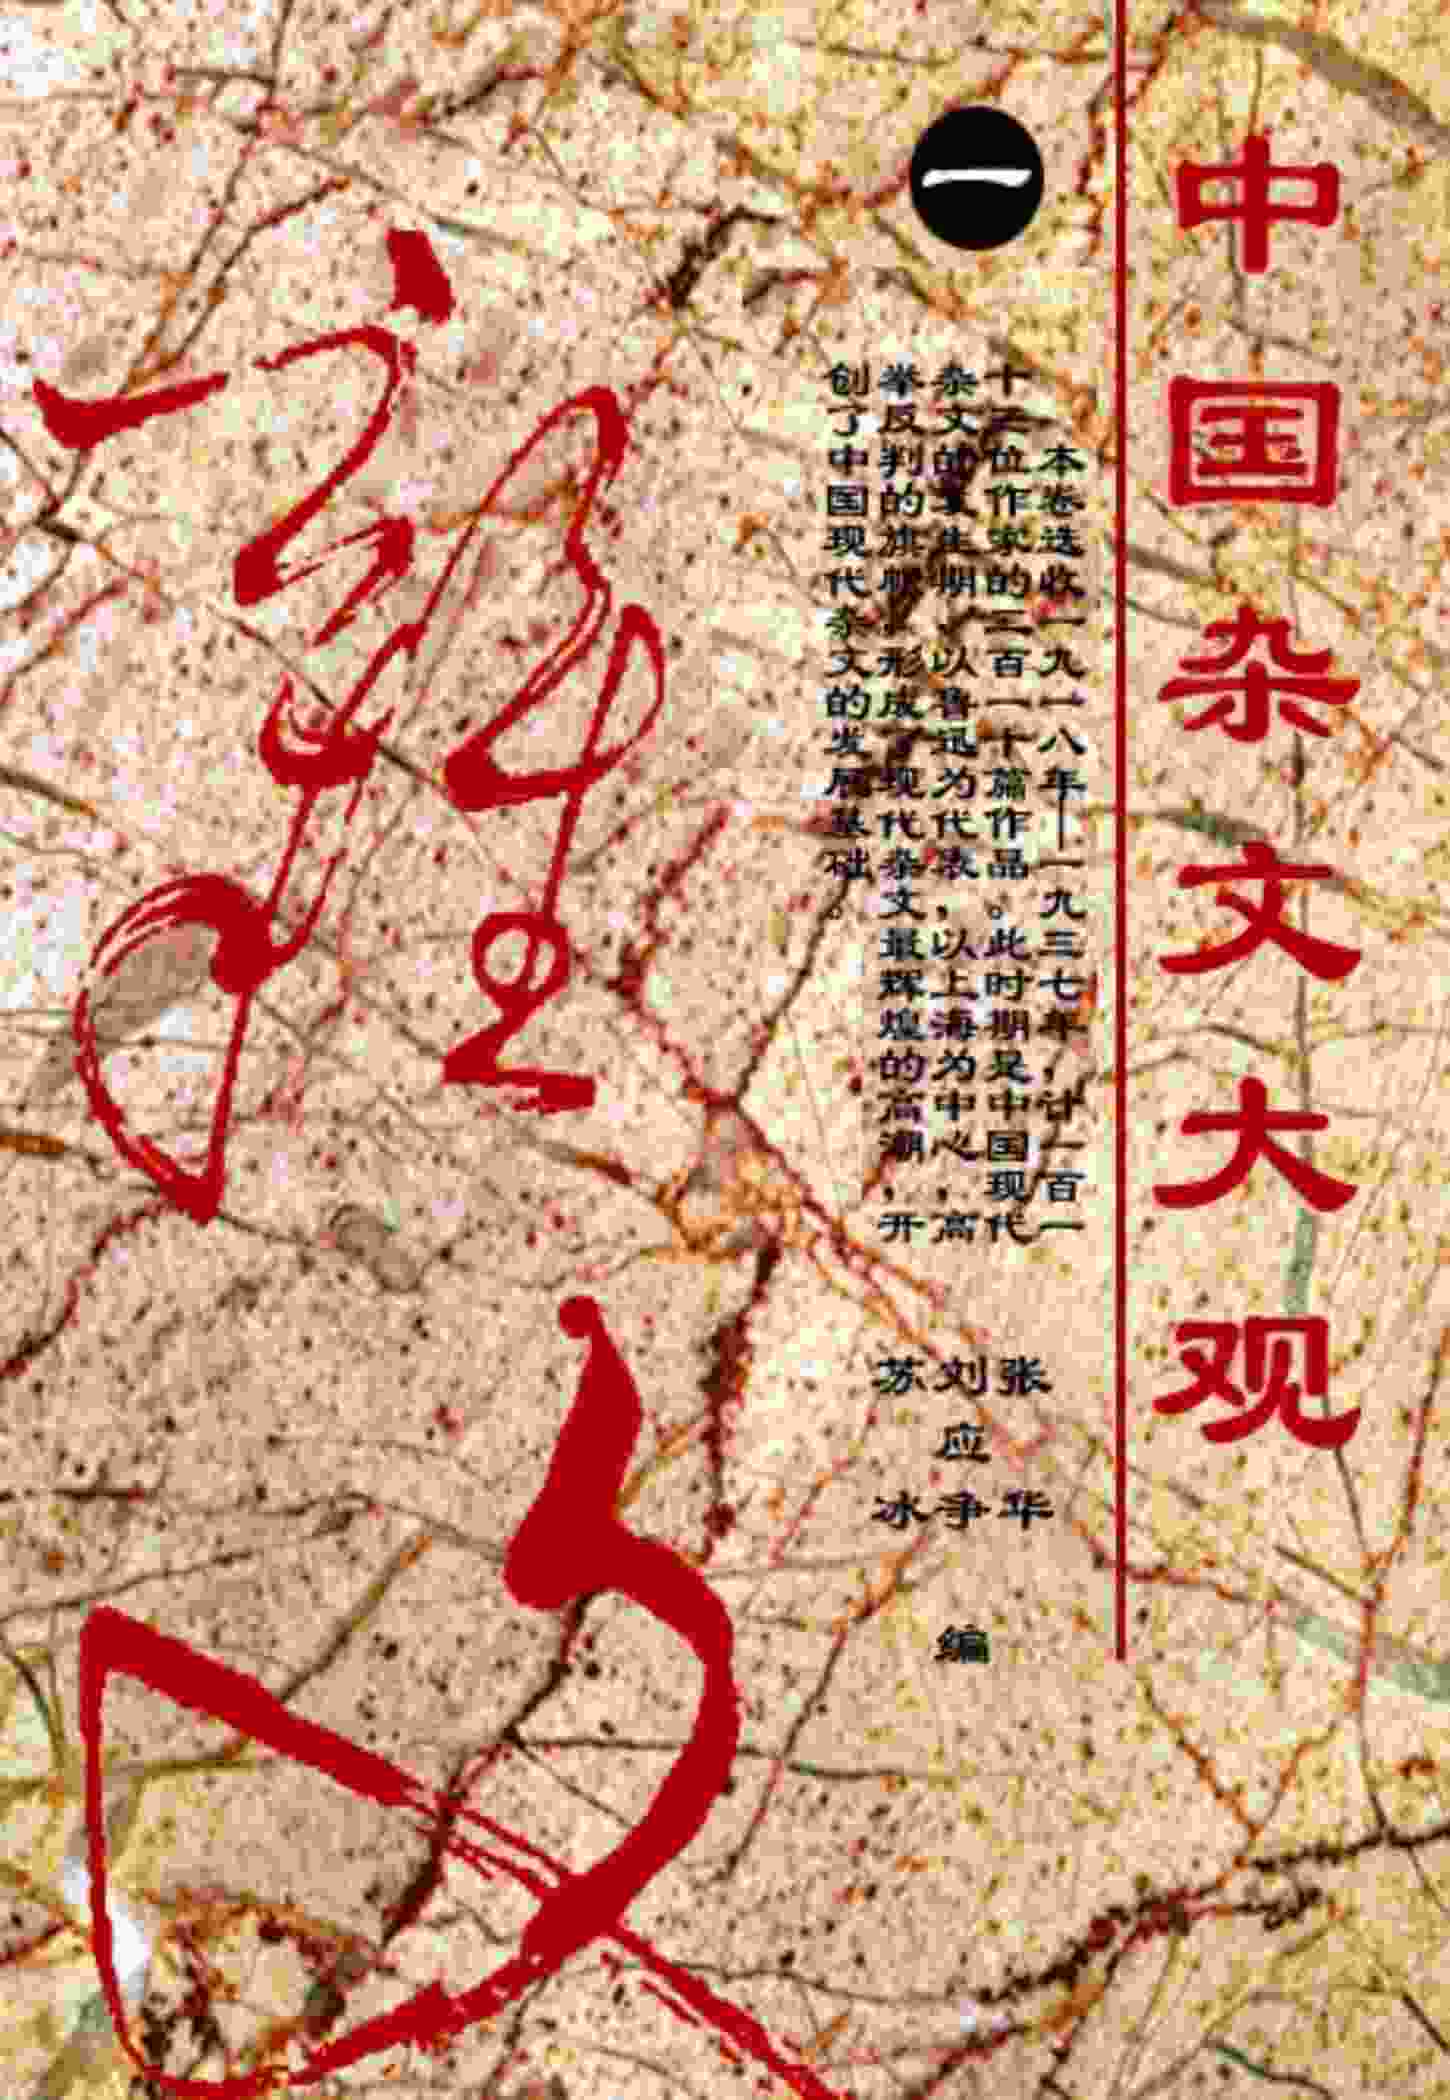 中国杂文大观
一
本卷选收一九一八年—一九三七年，计一百一
十三位作家的二百一十篇作品。此时期是中国现代
杂文的生期，以鲁迅为代表，以上海为中心，高
举反判的旗帜，形成了现代杂文最辉煌的高潮，开
创了中国现代杂文的发展基础。
张华
刘应争 编
苏冰